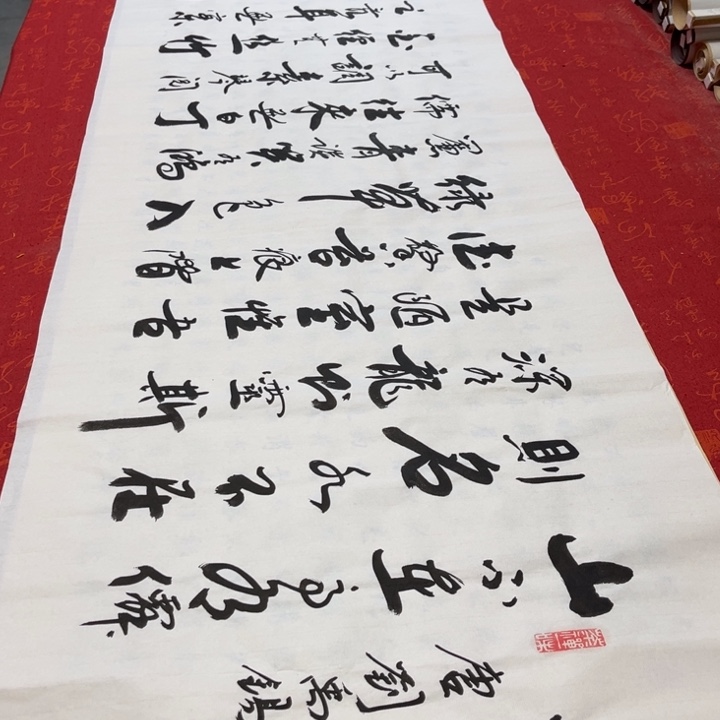 唐劉禹錫
山不在高有僊
則名水不在
深有龍則靈斯
是陋室惟吾
德馨苔痕上階
綠草色入
簾青談笑有鴻
儒往來無白丁
可以調素琴閱
金經無絲竹
之亂耳無案